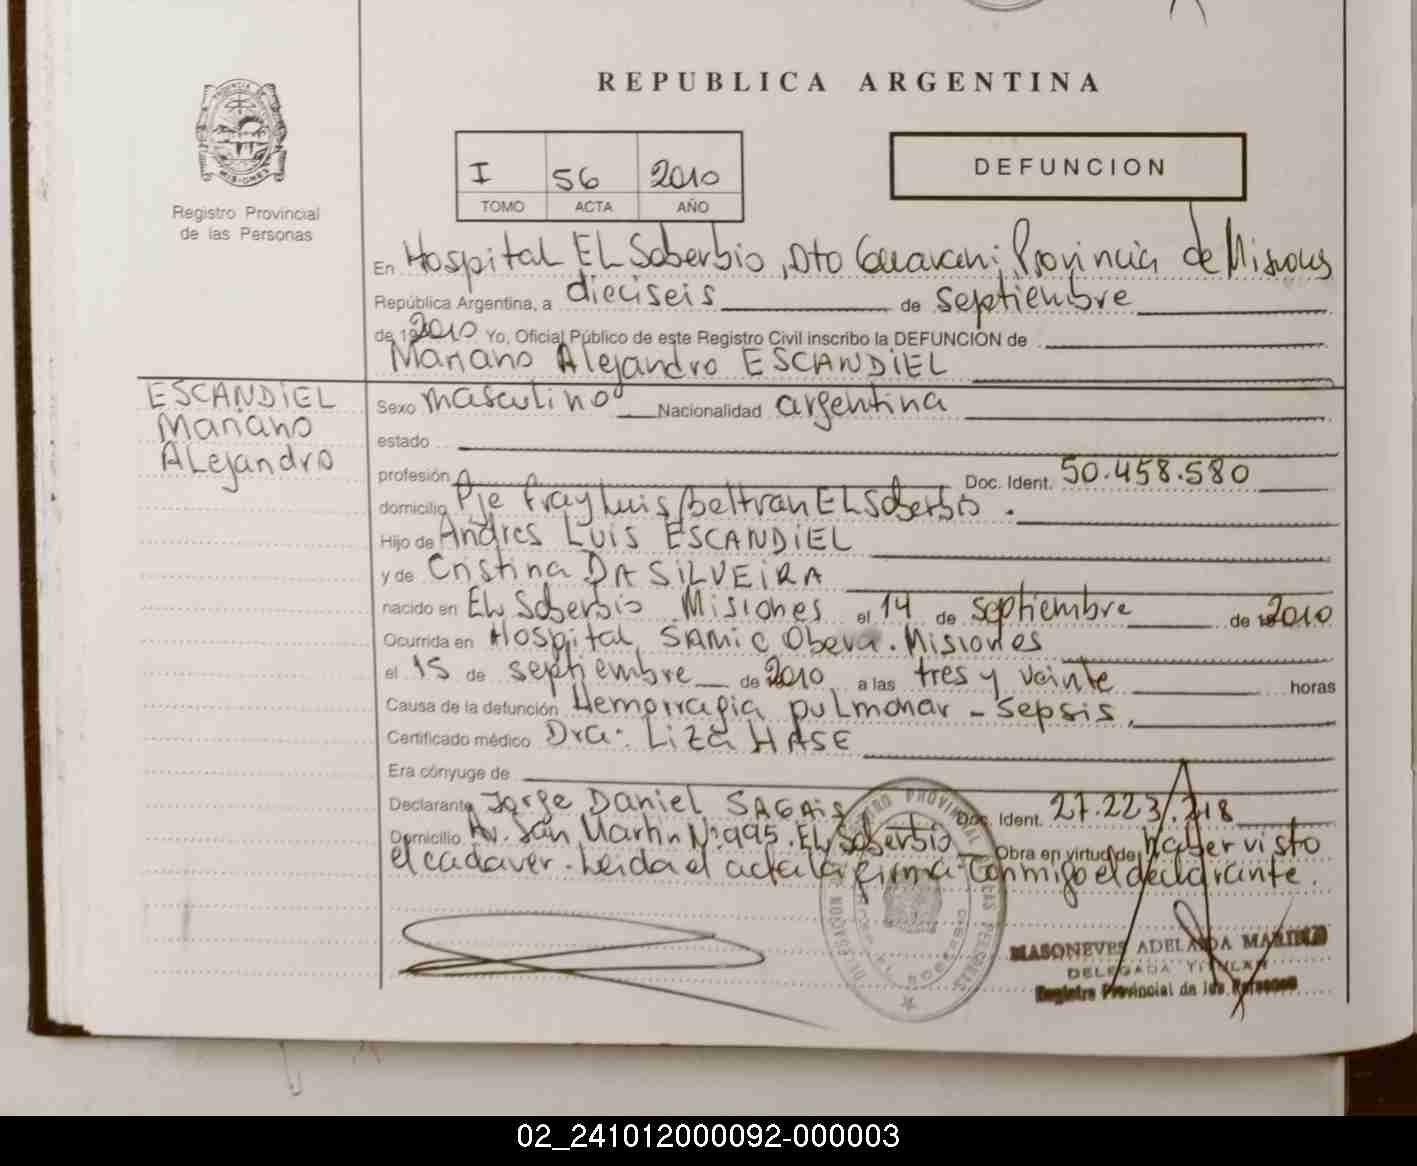 REPUBLICA ARGENTINA
PROVINCIA DE
MISIONES
Registro Provincial
de las Personas
I 56 2010
TOMO ACTA AÑO
DEFUNCION
En Hospital EL Soberbio, Dto Guarani; Provincia de Misiones
República Argentina, a dieciseis de septiembre
de 19 2010 Yo, Oficial Público de este Registro Civil inscribo la DEFUNCION de
Mariano Alejandro ESCANDIEL
ESCANDIEL
Mariano
ALejandro
Sexo masculino Nacionalidad argentina
estado
profesión Doc. Ident. 50.458.580
domicilio Pje Fray Luis Beltran EL Soberbio.
Hijo de Andres Luis ESCANDIEL
y de Cristina DA SILVEIRA
nacido en EL Soberbio Misiones el 14 de septiembre de 2010
Ocurrida en Hospital SAMIC Obera. Misiones
el 15 de septiembre de 2010 a las tres y veinte horas
Causa de la defunción Hemorragia pulmonar - sepsis.
Certificado médico Dra: Liza HASE
Era cónyuge de
Declarante Jorge Daniel SAGAIS Doc. Ident. 27.223.218
Domicilio Av. San Martin Nº 995. EL Soberbio Obra en virtud de haber visto
el cadaver. Leida el acta la firma conmigo el declarante.
MASONEVES ADELAIDA
DELEGADA TITULAR
Registro Provincial de las Personas
02_241012000092-000003